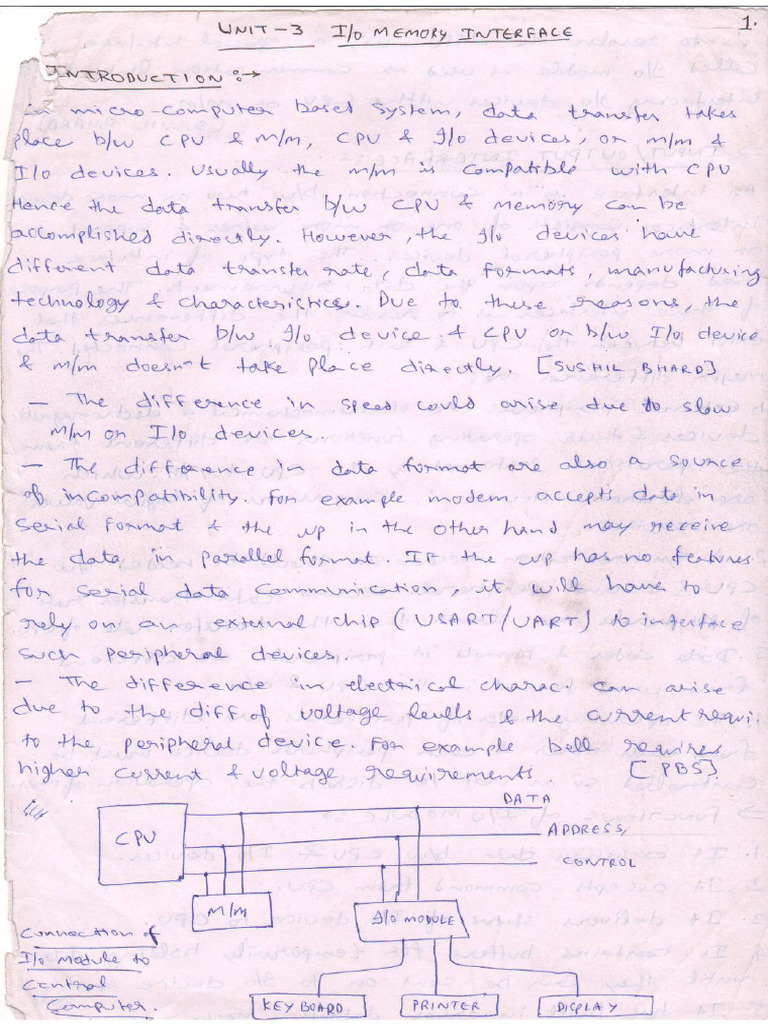 UNIT-3 I/O MEMORY INTERFACE
1.
INTRODUCTION :→
in micro-computer based system, data transfer takes
place b/w CPU & M/M, CPU & I/O devices, or M/M &
I/O devices. Usually the M/M is compatible with CPU
Hence the data transfer b/w CPU & memory can be
accomplished directly. However, the I/O devices have
different data transfer rate, data formats, manufacturing
technology & characteristics. Due to these reasons, the
data transfer b/w I/O device & CPU or b/w I/O device
& M/M doesn't take place directly. [SUSHIL BHARD]
- The difference in speed could arise due to slow
M/M or I/O devices
- The difference in data format are also a source
of incompatibility. For example modem accepts data in
serial format & the up in the other hand may receive
the data in parallel format. If the up has no features
for serial data communication, it will have to
rely on an external chip (USART/UART) to interface
such peripheral devices.
- The difference in electrical charact can arise
due to the diff of voltage levells & the current requi.
to the peripheral device. For example bell requires
higher current & voltage requirements. [PBS]
DATA
CPU
ADDRESS,
CONTROL
M/M
I/O MODULE
Connection of
I/O Module to
Central
Computer.
KEYBOARD PRINTER DISPLAY